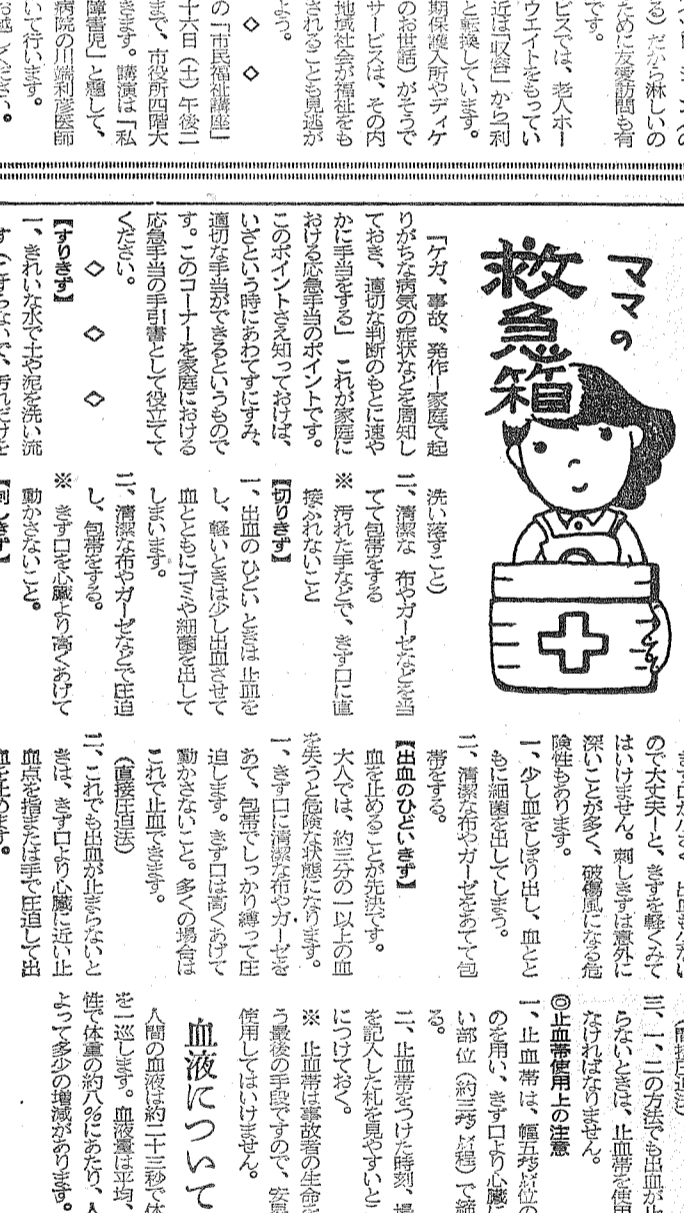 る）だから淋しいの
ために友愛訪問も有
です。
ビスでは、老人ホー
ウエイトをもってい
近は「収容」から「利
と転換しています。
期保護入所やディケ
のお世話）がそうで
サービスは、その内
地域社会が福祉をも
されることも見逃が
よう。
◇ ◇
の「市民福祉講座」
十六日（土）午後二
まで、市役所四階大
きます。講演は「私
障害児」と題して、
病院の川端利彦医師
いて行います。
お越しください。
ママの
救急箱
「ケガ、事故、発作ー家庭で起
りがちな病気の症状などを周知し
ておき、適切な判断のもとに速や
かに手当をする」 これが家庭に
おける応急手当のポイントです。
このポイントさえ知っておけば、
いざという時にあわてずにすみ、
適切な手当ができるというもので
す。このコーナーを家庭における
応急手当の手引書として役立てて
ください。
◇ ◇ ◇
【すりきず】
一、きれいな水で土や泥を洗い流
す（こすらないで、汚れだけを
洗い落すこと）
二、清潔な 布やガーゼなどを当
てて包帯をする
※ 汚れた手などで、きず口に直
接ふれないこと
【切りきず】
一、出血の ひどい ときは 止血を
し、軽いときは少し出血させて
血とともにゴミや細菌を出して
しまいます。
二、清潔な布やガーゼなどで圧迫
し、包帯をする。
※ きず口を心臓より高くあげて
動かさないこと。
【刺しきず】
きず口が小さく、出血も少ない
ので大丈夫ーと、きずを軽くみて
はいけません。刺しきずは意外に
深いことが多く、破傷風になる危
険性もあります。
一、少し血をしぼり出し、血とと
もに細菌を出してしまう。
二、清潔な布やガーゼをあてて包
帯をする。
【出血のひどいきず】
血を止めることが先決です。
大人では、約三分の一以上の血
を失うと危険な状態になります。
一、きず口に清潔な布やガーゼを
あて、包帯でしっかり縛って圧
迫します。きず口は高くあげて
動かさないこと。多くの場合は
これで止血できます。
（直接圧迫法）
二、これでも出血が止まらないと
きは、きず口より心臓に近い止
血点を指または手で圧迫して出
血を止めます。
（間接圧迫法）
三、一、二の方法でも出血が止
らないときは、止血帯を使用
なければなりません。
◎止血帯使用上の注意
一、止血帯は、幅五㌢㍍位の
のを用い、きず口より心臓に
い部位（約三㌢㍍程）で締
る。
二、止血帯をつけた時刻、場
を記入した札を見やすいとこ
につけておく。
※ 止血帯は事故者の生命を
う最後の手段ですので、安易
使用してはいけません。
血液について
人間の血液は約二十三秒で体
を一巡します。血液量は平均、
性で体重の約八%にあたり、人
よって多少の増減があります。